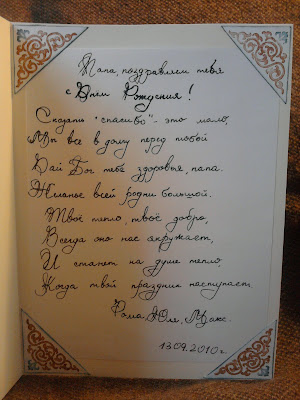 Папа, поздравляем тебя
с Днем Рождения!
Сказать "спасибо" - это мало,
Мы все в долгу перед тобой
Дай Бог тебе здоровья, папа.
Желанье всей родни большой.
Твоё тепло, твоё добро,
Всегда оно нас окружает,
И станет на душе тепло
Когда твой праздник наступает.
Рома, Юля, Макс.
13.09.2010г.